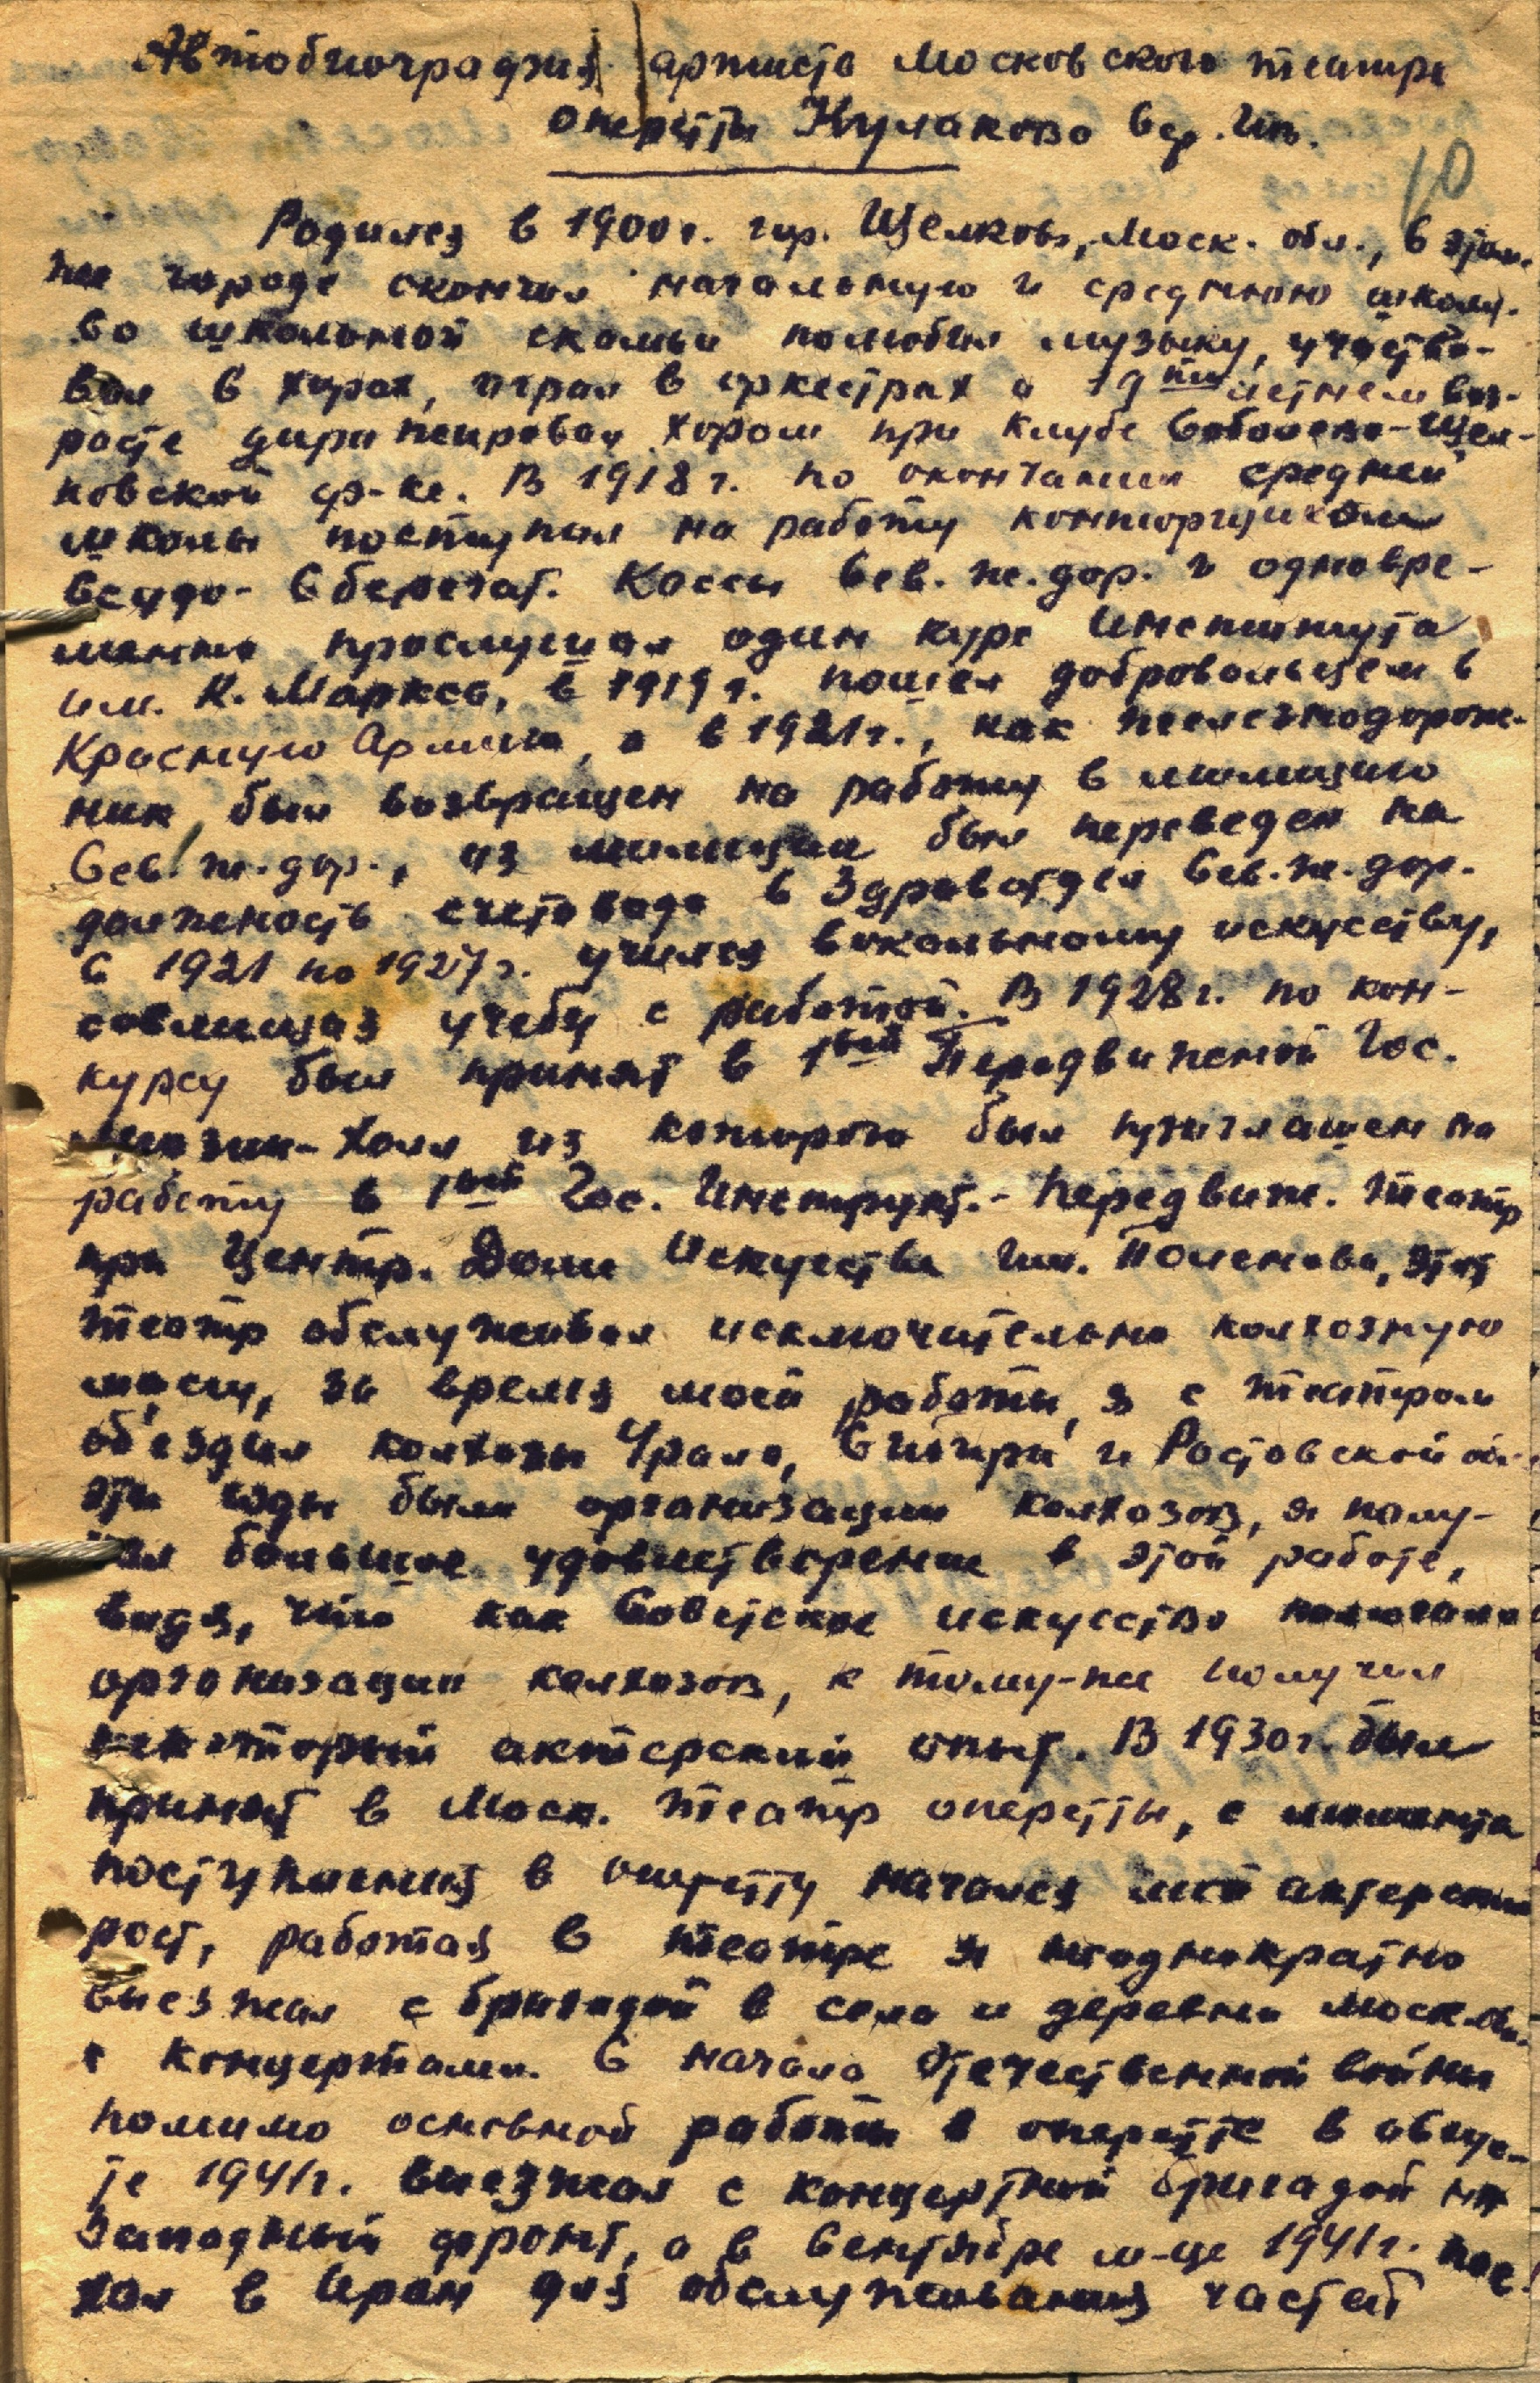 Автобиография артиста Московского театра
оперетты Кулакова Сер. Ив.
10
Родился в 1900 г. гор. Щелкове, Моск. обл., в этом
же городе окончил начальную и среднюю школу.
Со школьной скамьи полюбил музыку, участво-
вал в хорах, играл в оркестрах а летнем воз-
расте дирижировал хором при клубе Соболево-Щел-
ковской ф-ке. В 1918 г. по окончании средней
школы поступил на работу конторщиком
Ссудо-Сберегат. Кассы Сев. ж. дор. и одновре-
менно прослушал один курс Института
им. К. Маркса, в 1919 г. пошел добровольцем в
Красную Армию, а в 1921 г., как железнодорож-
ник был возвращен на работу в милицию
Сев. ж. дор., из милиции был переведен на
должность счетовода в Здравотдел Сев. ж. дор.
С 1921 по 1927 г. учился вокальному искусству,
совмещая учебу с работой. В 1928 г. по кон-
курсу был принят в 1ый Передвижной Гос.
Мюзик-Холл из которого был приглашен на
работу в 1ый Гос. Инструкт.-Передвиж. театр
при Центр. Доме Искусства им. Поленова, этот
театр обслуживал исключительно колхозную
массу, за время моей работы, я с театром
об'ездил колхозы Урала, Сибири и Ростовской об.
эти годы были организации колхозов, я полу-
чал большое удовлетворение в этой работе,
видя, что как Советское искусство помогало
организации колхозов, к тому-же получил
некоторый актерский опыт. В 1930 г. был
принят в Моск. театр оперетты, с момента
поступления в оперетту начался мой актерский
рост, работая в театре я неоднократно
выезжал с бригадой в села и деревни Моск. об.
с концертами. С начала Отечественной войны
помимо основной работы в оперетте в авгус-
те 1941 г. выезжал с концертной бригадой на
Западный фронт, а в Сентябре м-це 1941 г. пое-
хал в Иран для обслуживания частей